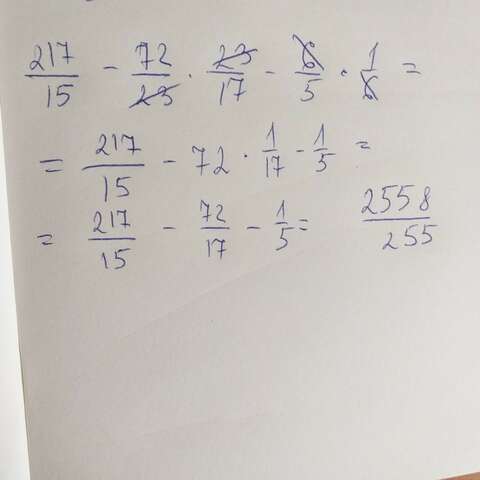 217/15 - 72/23 · 23/17 - 6/5 · 1/6 =
= 217/15 - 72 · 1/17 - 1/5 =
= 217/15 - 72/17 - 1/5 = 2558/255